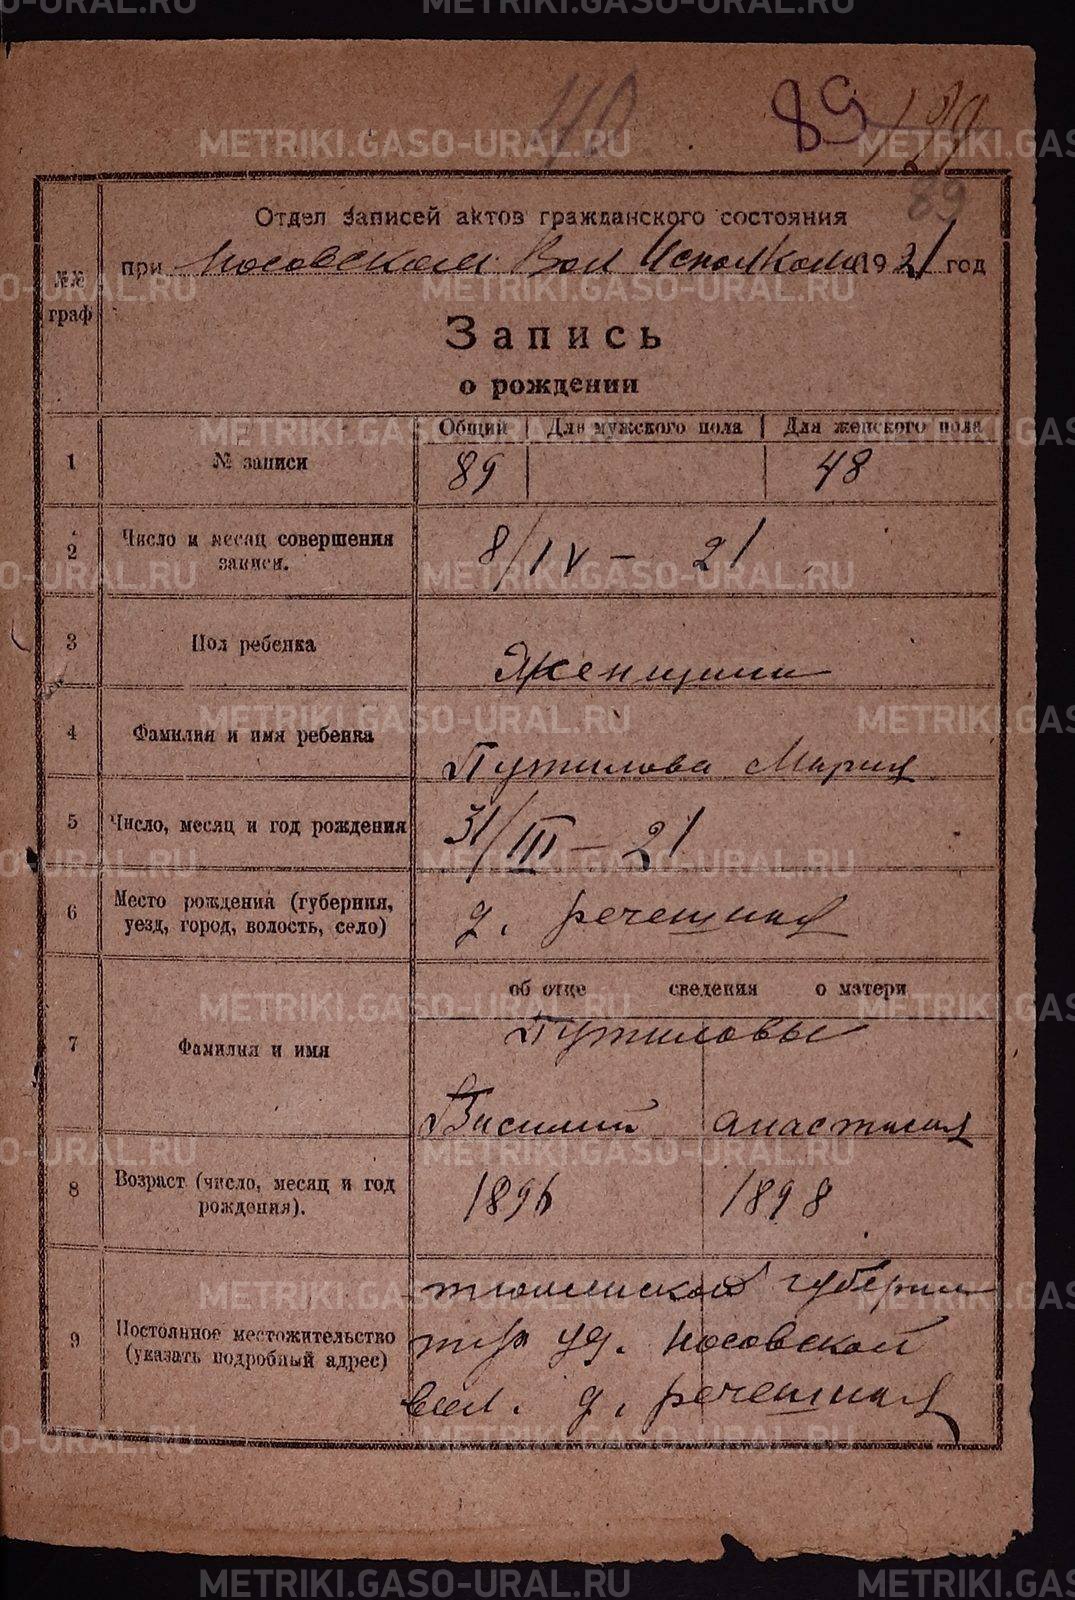 METRIKI.GASO-URAL.RU
40 89 129
89
Отдел записей актов гражданского состояния
при Носовском Вол Исполкоме 1921 год
№№ граф
Запись
о рождении
Общий Для мужского пола Для женского пола
1 № записи 89 48
2 Число и месяц совершения записи. 8/IV – 21
3 Пол ребенка Женщина
4 Фамилия и имя ребенка Путилова Мария
5 Число, месяц и год рождения 31/III – 21
6 Место рождения (губерния, уезд, город, волость, село) д. речешная
об отце сведения о матери
7 Фамилия и имя Путиловы
Василий анастасия
8 Возраст (число, месяц и год рождения). 1896 1898
9 Постоянное местожительство (указать подробный адрес) тюменской губернии
тур уд. носовской
вол. д. речешная